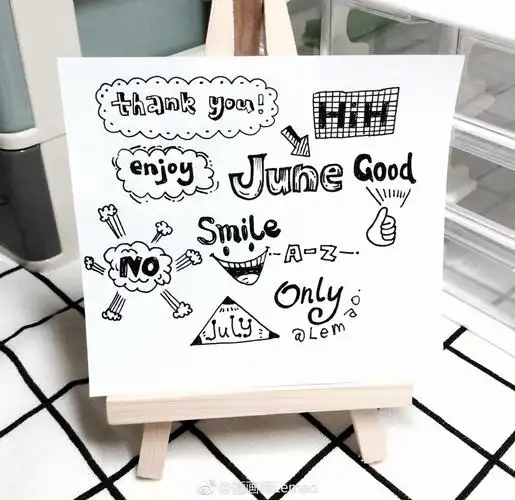 thank you!
HiH
enjoy
June
Good
Smile
NO
A-Z
Only
July
@Lemao.